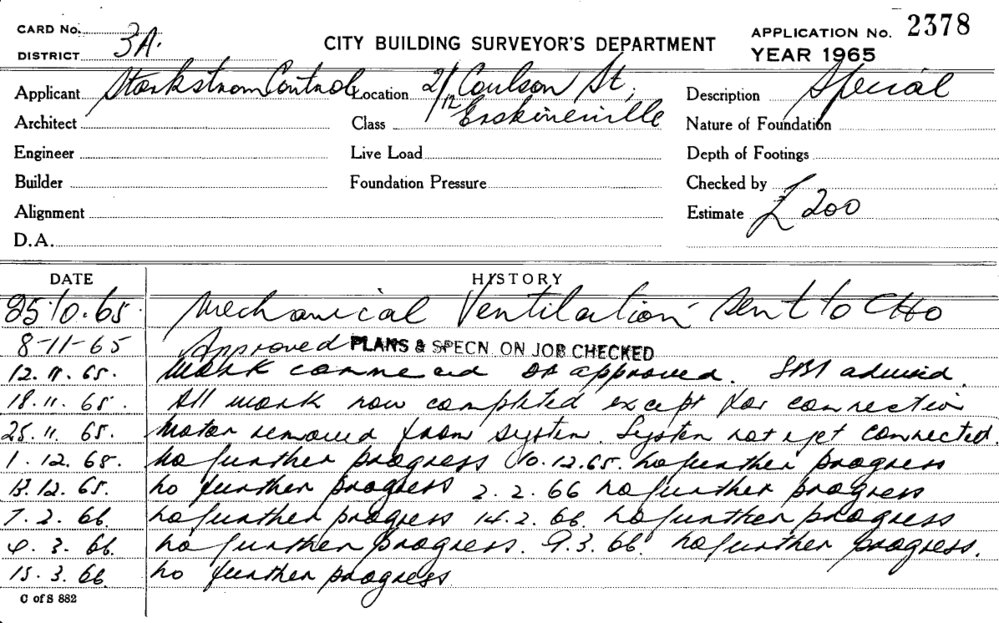 CARD No. 3A.
DISTRICT
CITY BUILDING SURVEYOR'S DEPARTMENT
APPLICATION No. 2378
YEAR 1965
Applicant Starkstrom Controls Location 2/12 Coulson St, Description Special
Architect Class Erskineville Nature of Foundation
Engineer Live Load Depth of Footings
Builder Foundation Pressure Checked by
Alignment Estimate £ 200
D.A.
DATE HISTORY
25.10.65. Mechanical Ventilation - Sent to CHO
8-11-65 Approved PLANS & SPECN. ON JOB CHECKED
12.11.65. Work commenced as approved. advised.
18.11.65. All work now completed except for connection
25.11.65. Motor removed from system. System not yet connected.
1.12.65. no further progress 10.12.65. no further progress
13.12.65. no further progress 2.2.66 no further progress
7.2.66. no further progress 14.2.66. no further progress
4.3.66. no further progress. 9.3.66. no further progress.
15.3.66 no further progress
C of S 882